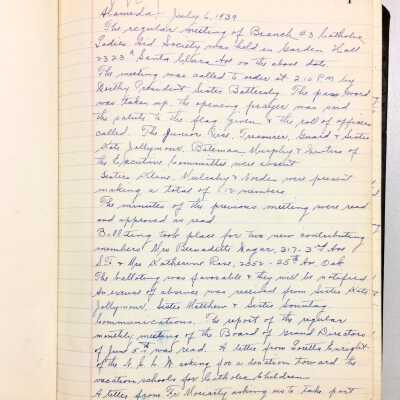 Alameda - July 6, 1939
The regular meeting of Branch #3 Catholic
Ladies Aid Society was held in Garden Hall
2323 A Santa Clara Ave on the above date
The meeting was called to order at 2:10 P.M. by
Worthy President Sister Battersby. The pass word
was taken up, the opening prayer was said
the salute to the flag given & the roll of officers
called. The Junior Past, Treasurer, Guard & Sisters
Kate Jollymour, Bateman, Murphy & Montero of
the Executive Committee were absent
Sisters Keane, Mulcahy & Norden were present
making a total of 12 members
The minutes of the previous meeting were read
and approved as read
Balloting took place for two new contributing
members Mrs Bernadette Nagar, 217-2nd Ave
S.F. & Mrs Katherine Rose, 2552-25th Av Oak
The balloting was favorable & they will be notified
An excuse of absence was received from Sister Kate
Jollymour, Sister Matthew & Sister Sontag
Communications. The report of the regular
monthly meeting of the Board of Grand Directors
of June 5th was read. A letter from Loretto Enright
of the asking for a donation toward the
vacation schools for Catholic Children
A letter from Fr Moriarty asking us to take part